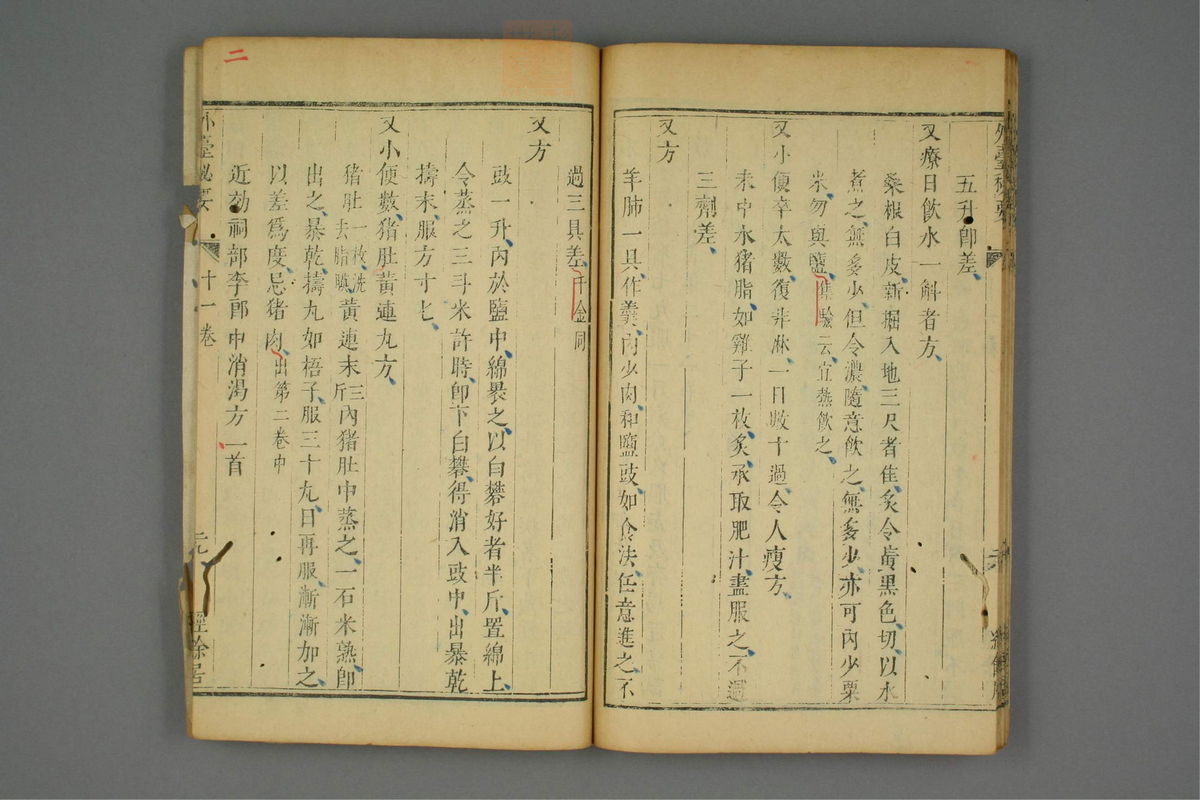 五升卽差
又療日飮水一斛者方
桑根白皮新掘入地三尺者佳炙令黃黑色切以水
煮之無多少但令濃隨意飮之無多少亦可內少粟
米勿與鹽集驗云宜熱飮之
又小便卒太數復非淋一日數十過令人瘦方
未中水猪脂如雞子一枚炙承取肥汁盡服之不過
三劑差
又方
羊肺一具作羹內少肉和鹽豉如食法任意進之不
過三具差千金同
又方
豉一升內於鹽中綿裹之以白礬好者半斤置綿上
令蒸之三斗米許時卽下白礬得消入豉中出暴乾
擣末服方寸匕
又小便數猪肚黃連丸方
猪肚一枚洗去脂膜黃連末三斤內猪肚中蒸之一石米熟卽
出之暴乾擣丸如梧子服三十丸日再服漸漸加之
以差爲度忌猪肉出第二卷中
近効祠部李郎中消渴方一首
外臺秘要
十一卷
經餘居
二